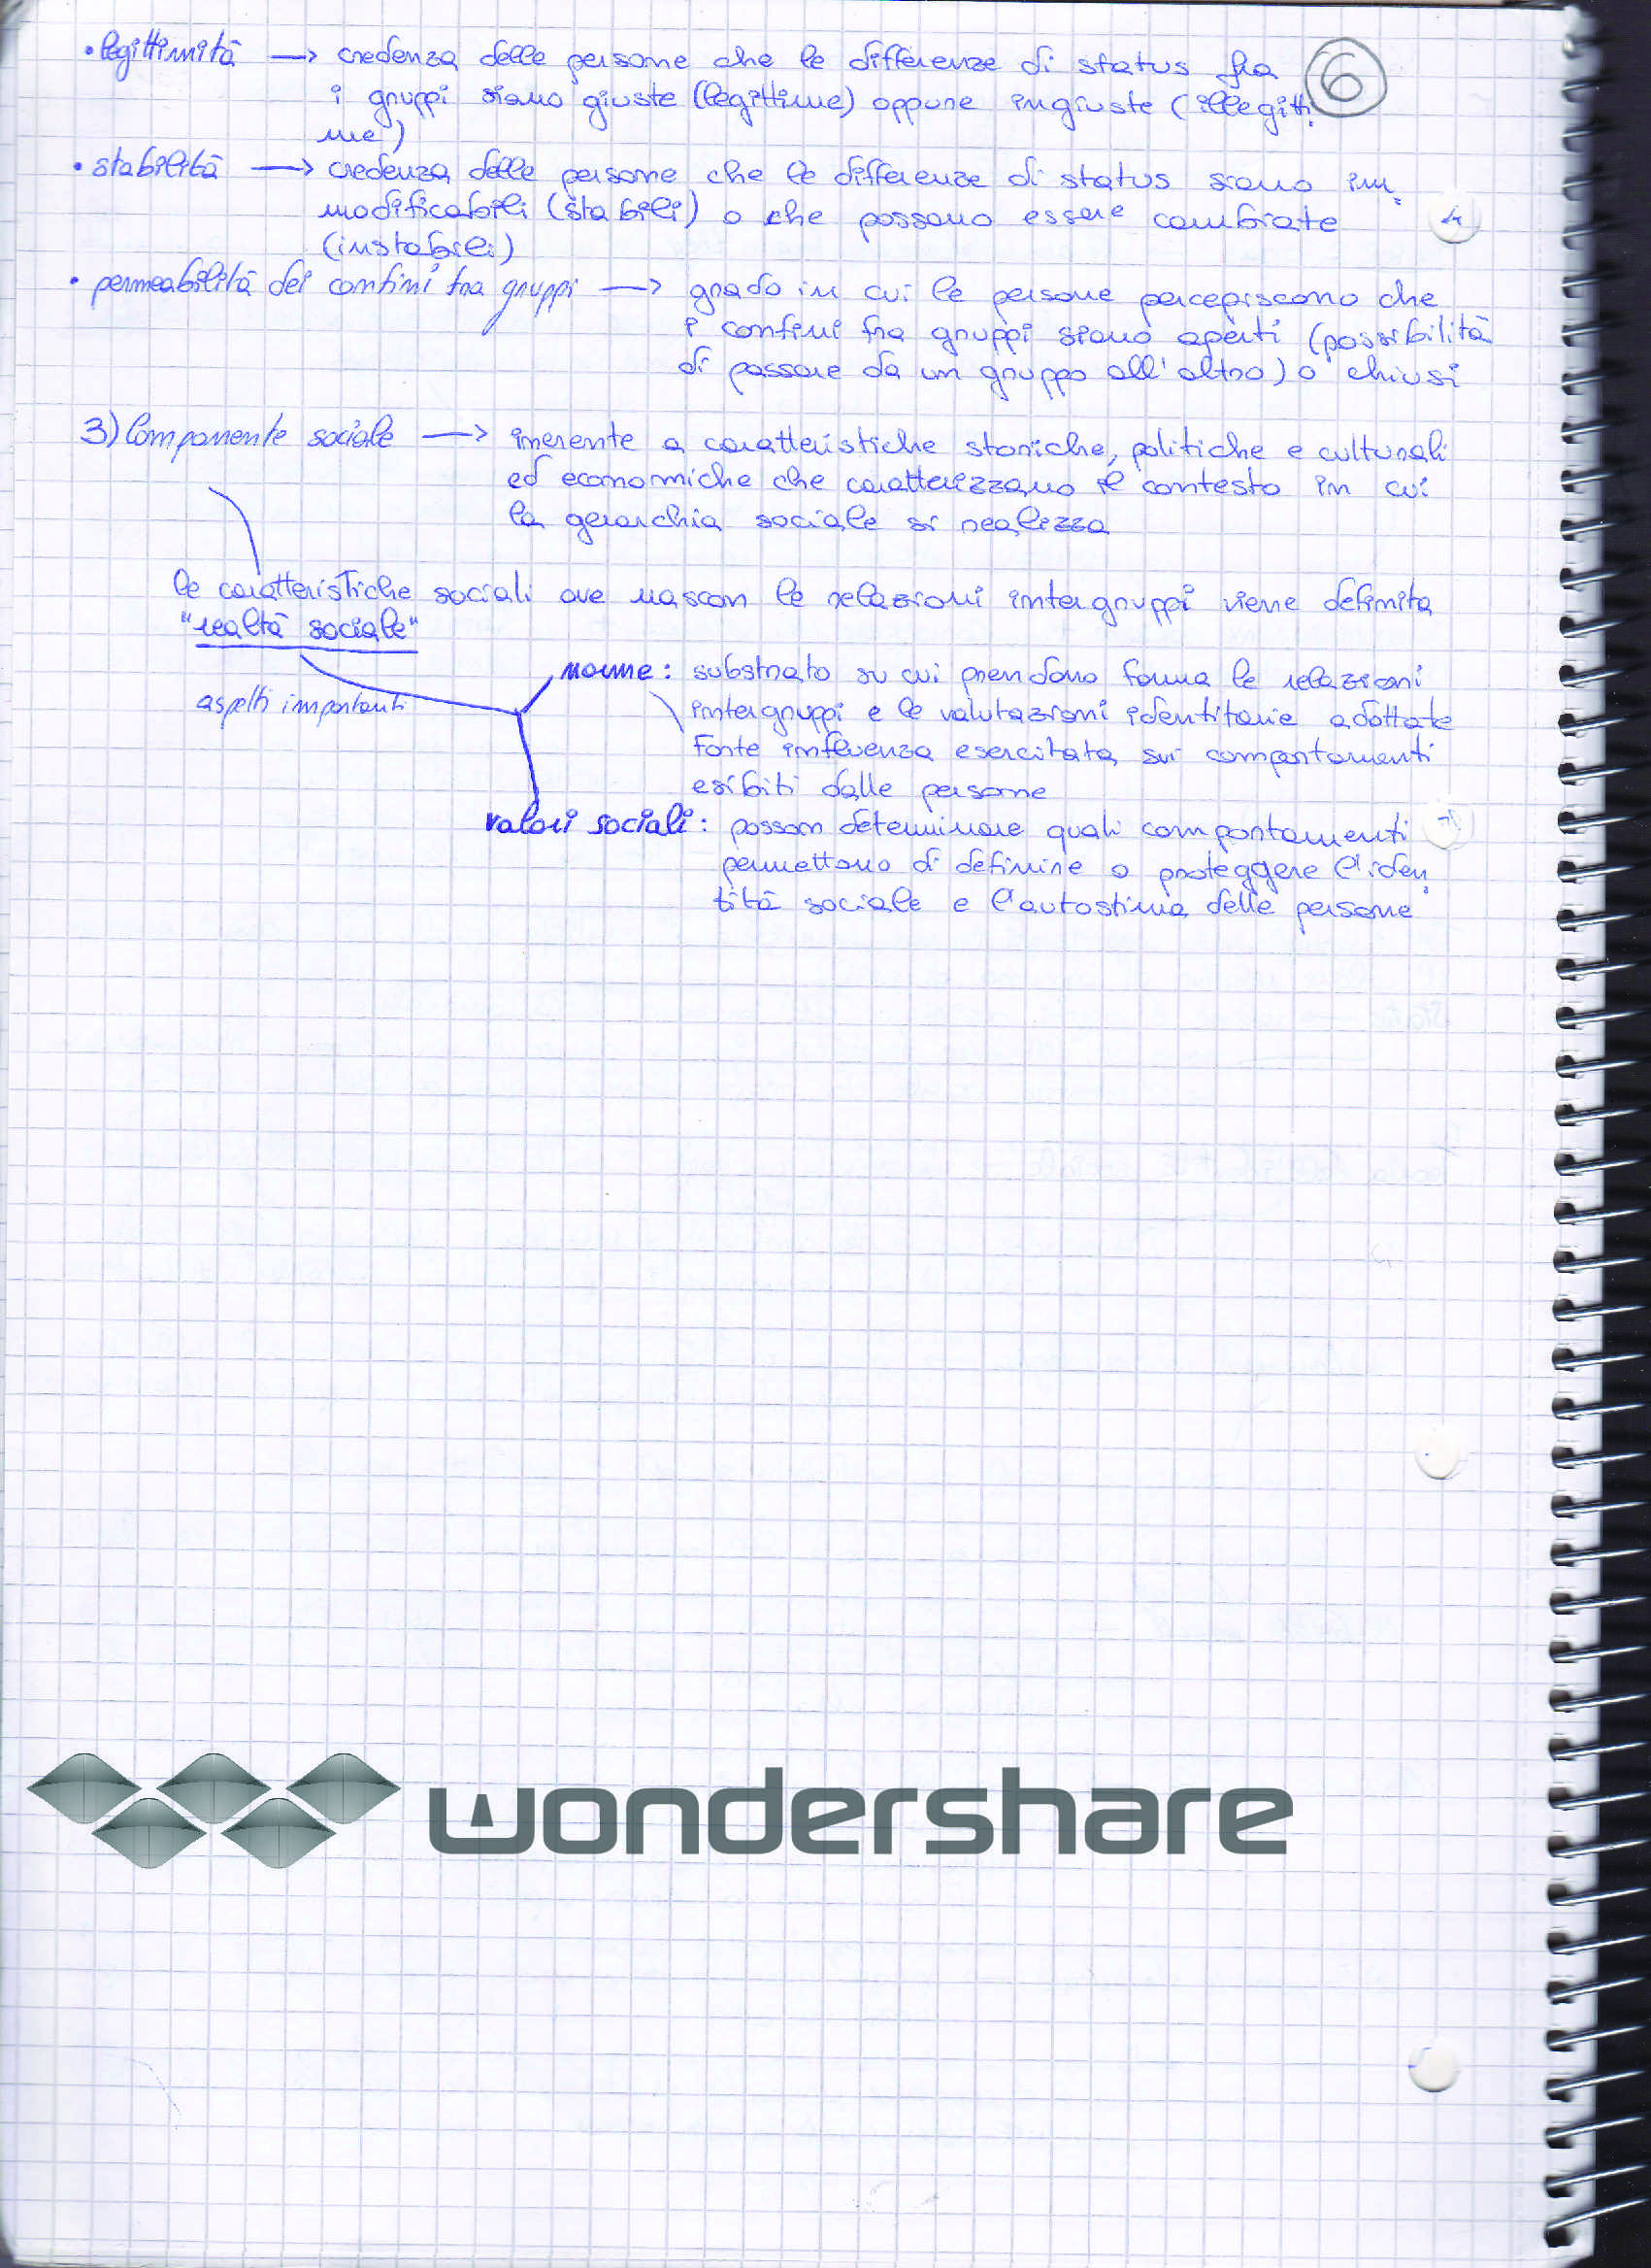 • legittimità → credenza delle persone che le differenze di status fra
6
i gruppi siano giuste (legittime) oppure ingiuste (illegitti
me)
• stabilità → credenza delle persone che le differenze di status siano im
modificabili (stabili) o che possano essere cambiate
(instabili)
• permeabilità dei confini fra gruppi → grado in cui le persone percepiscono che
i confini fra gruppi siano aperti (possibilità
di passare da un gruppo all'altro) o chiusi
3) Componente sociale → inerente a caratteristiche storiche, politiche e culturali
ed economiche che caratterizzano il contesto in cui
la gerarchia sociale si realizza
le caratteristiche sociali ove nascon le relazioni intergruppi viene definita
"realtà sociale"
norme: substrato su cui prendono forma le relazioni
aspetti importanti
intergruppi e le valutazioni identitarie adottate
Forte influenza esercitata sui comportamenti
esibiti dalle persone
valori sociali: possom determinare quali comportamenti
permettono di definire o proteggere l'iden
tità sociale e l'autostima delle persone
wondershare